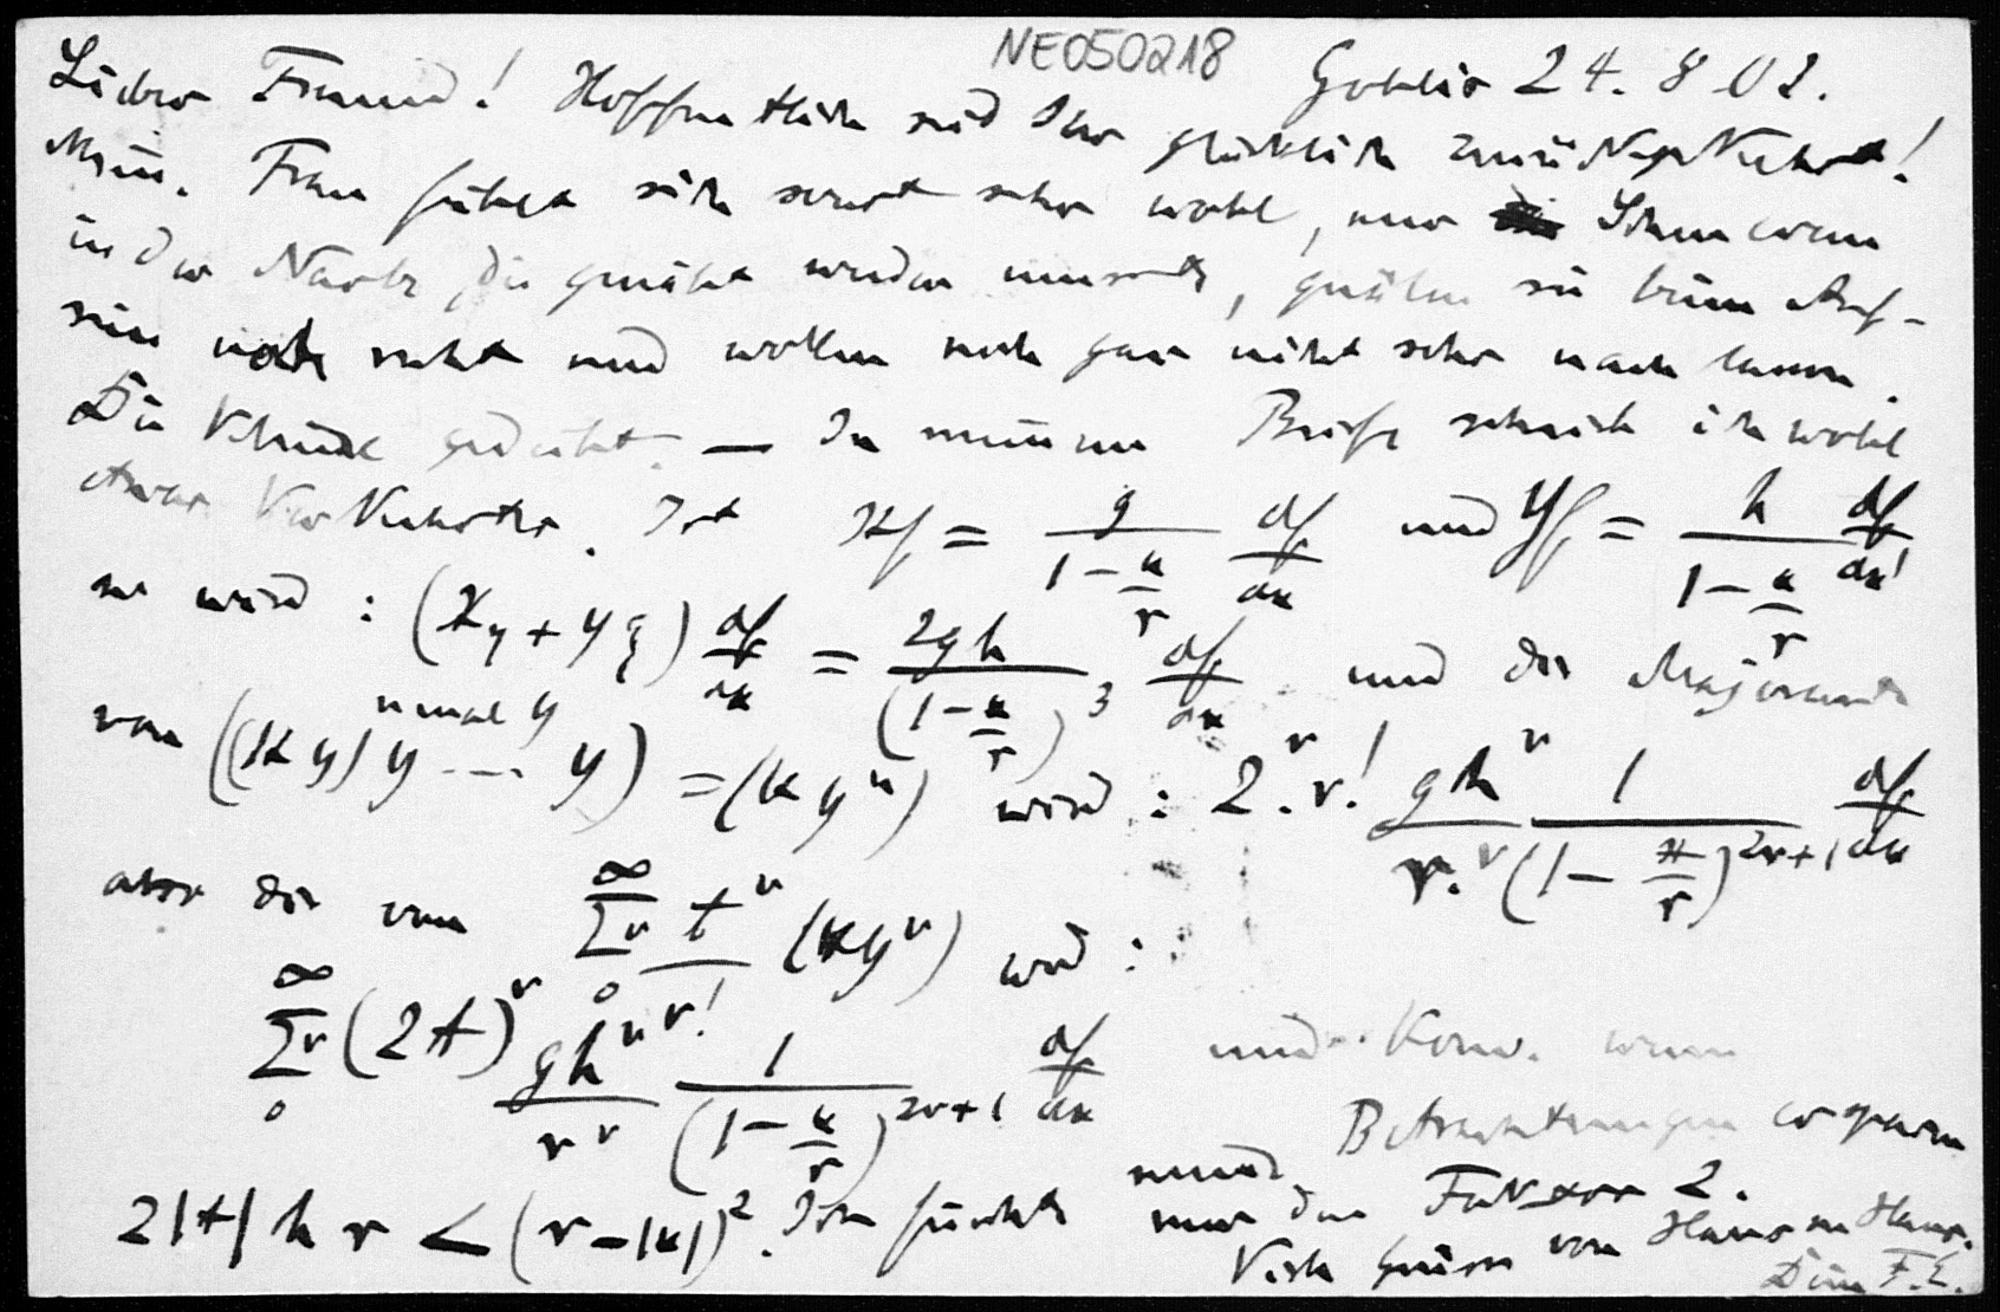 NE050218
Gohlis 24. 8 02.
Lieber Freund! Hoffentlich seid Ihr glücklich zurückgekehrt!
Mein. Frau fühlt sich sonst sehr wohl, nur Schmerzen
in der Narbe, die genäht werden musste, quälen sie beim Auf-
sein noch recht und wollen noch gar nicht sehr nach lassen.
Die Kleine gedeiht. — In meinem Briefe schrieb ich wohl
etwas Verkehrtes. Ist Xf = g/(1 - x/r) df/dx und Yf = h/(1 - x/r) df/dx,
so wird: (Xη + Yξ) df/dx = 2gh/(1 - x/r)^3 df/dx und die Majorante
von ((XY)Y ... Y) = (XY^ν) wird: 2^ν. ν! gh^ν/r^ν 1/(1 - x/r)^{2ν+1} df/dx
n mal Y
aber die von Σν_0^∞ t^ν/ν! (XY^ν) wird:
Σν_0^∞ (2t)^ν gh^ν/r^ν 1/(1 - x/r)^{2ν+1} df/dx und Konv. wenn
2|t| h r < (r - |x|)^2. Ich fürchte
Betrachtungen ersparen
nur den Faktor 2.
Viele Grüsse von Haus zu Haus.
Dein F. E.